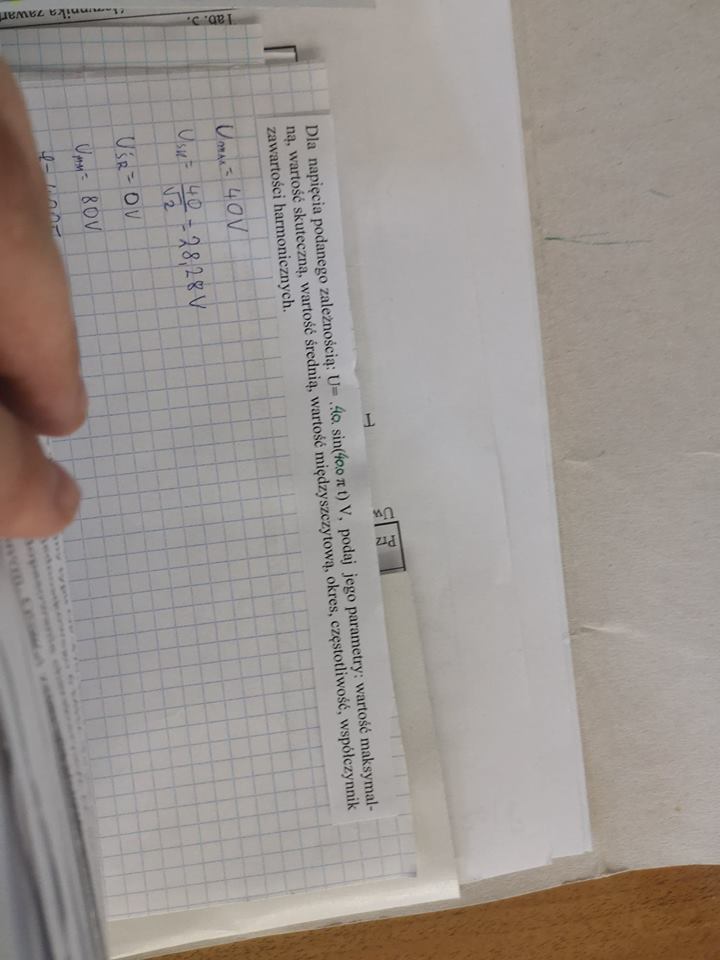 Prz
Uw
T
Dla napięcia podanego zależnością: U= .40. sin(400 π t) V, podaj jego parametry: wartość maksymal-
ną, wartość skuteczną, wartość średnią, wartość międzyszczytową, okres, częstotliwość, współczynnik
zawartości harmonicznych.
Umax= 40V
Usk= 40/√2 = 28,28V
UŚR= 0V
UMM= 80V
Tab. 3.